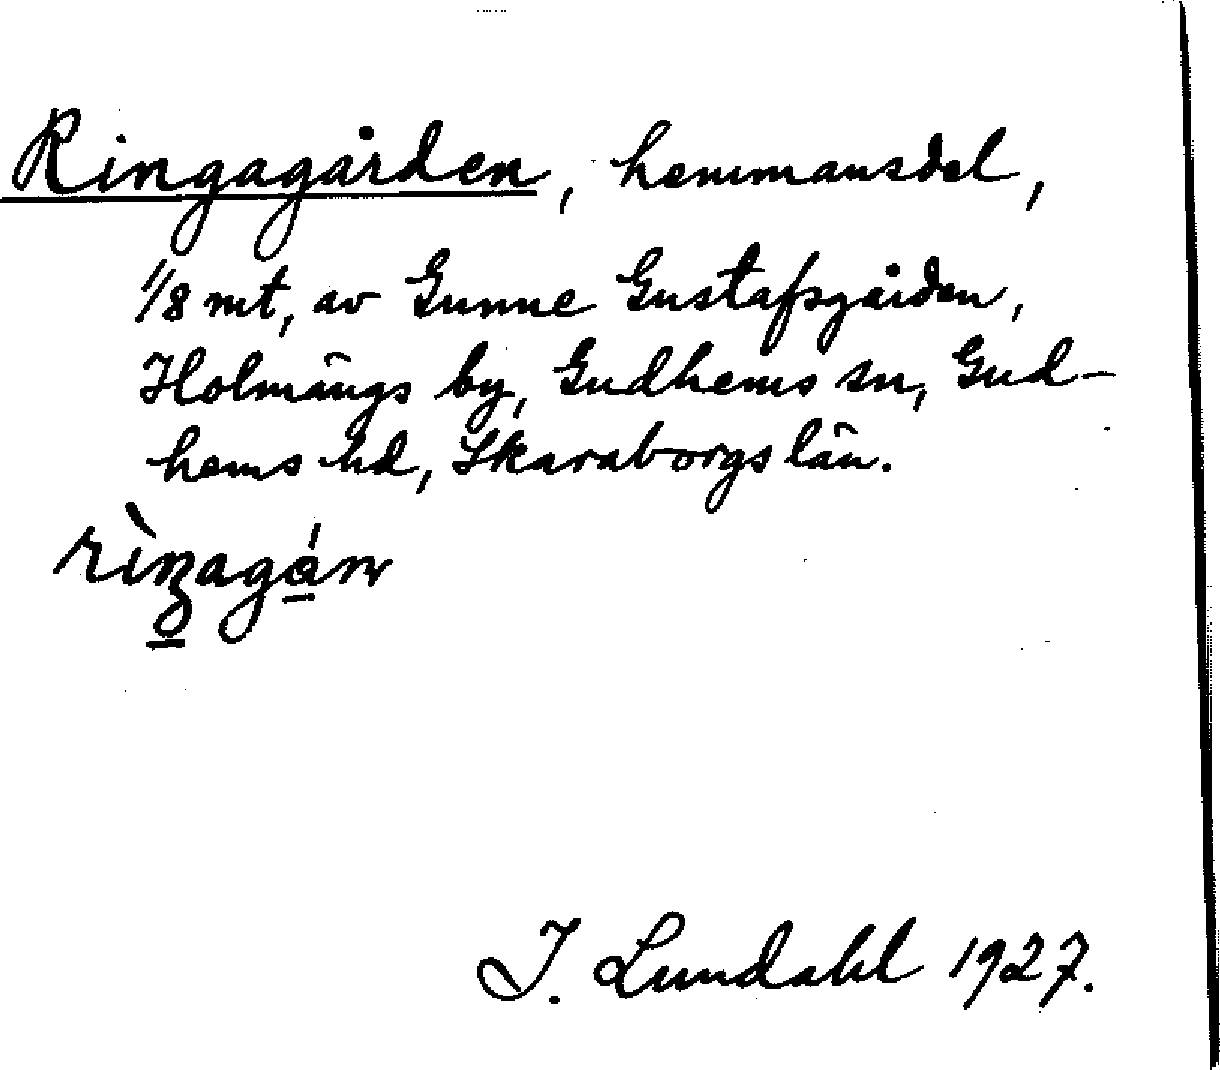 Ringagården, hemmansdel,
1/8 mt, av Gunne Gustafsgården,
Holmängs by, Gudhems sn, Gud-
hems hd, Skaraborgs län.
rìŋagán
I. Lundahl 1927.